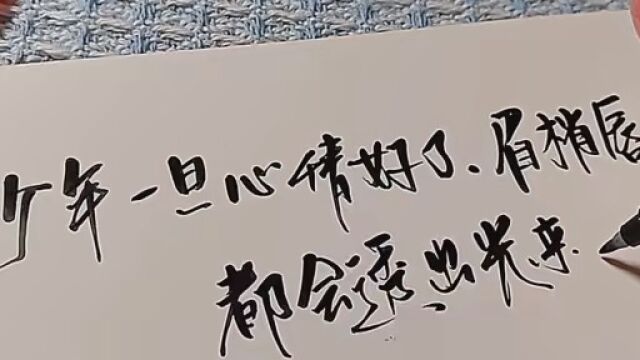 少年一旦心情好了、眉梢唇
都会透出光来